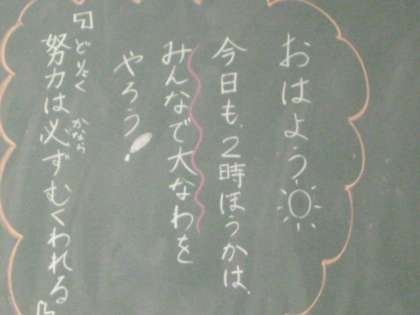 おはよう
今日も、2時ほうかは、
みんなで大なわを
やろう!
『努力は必ずむくわれる』
どりょく
かなら